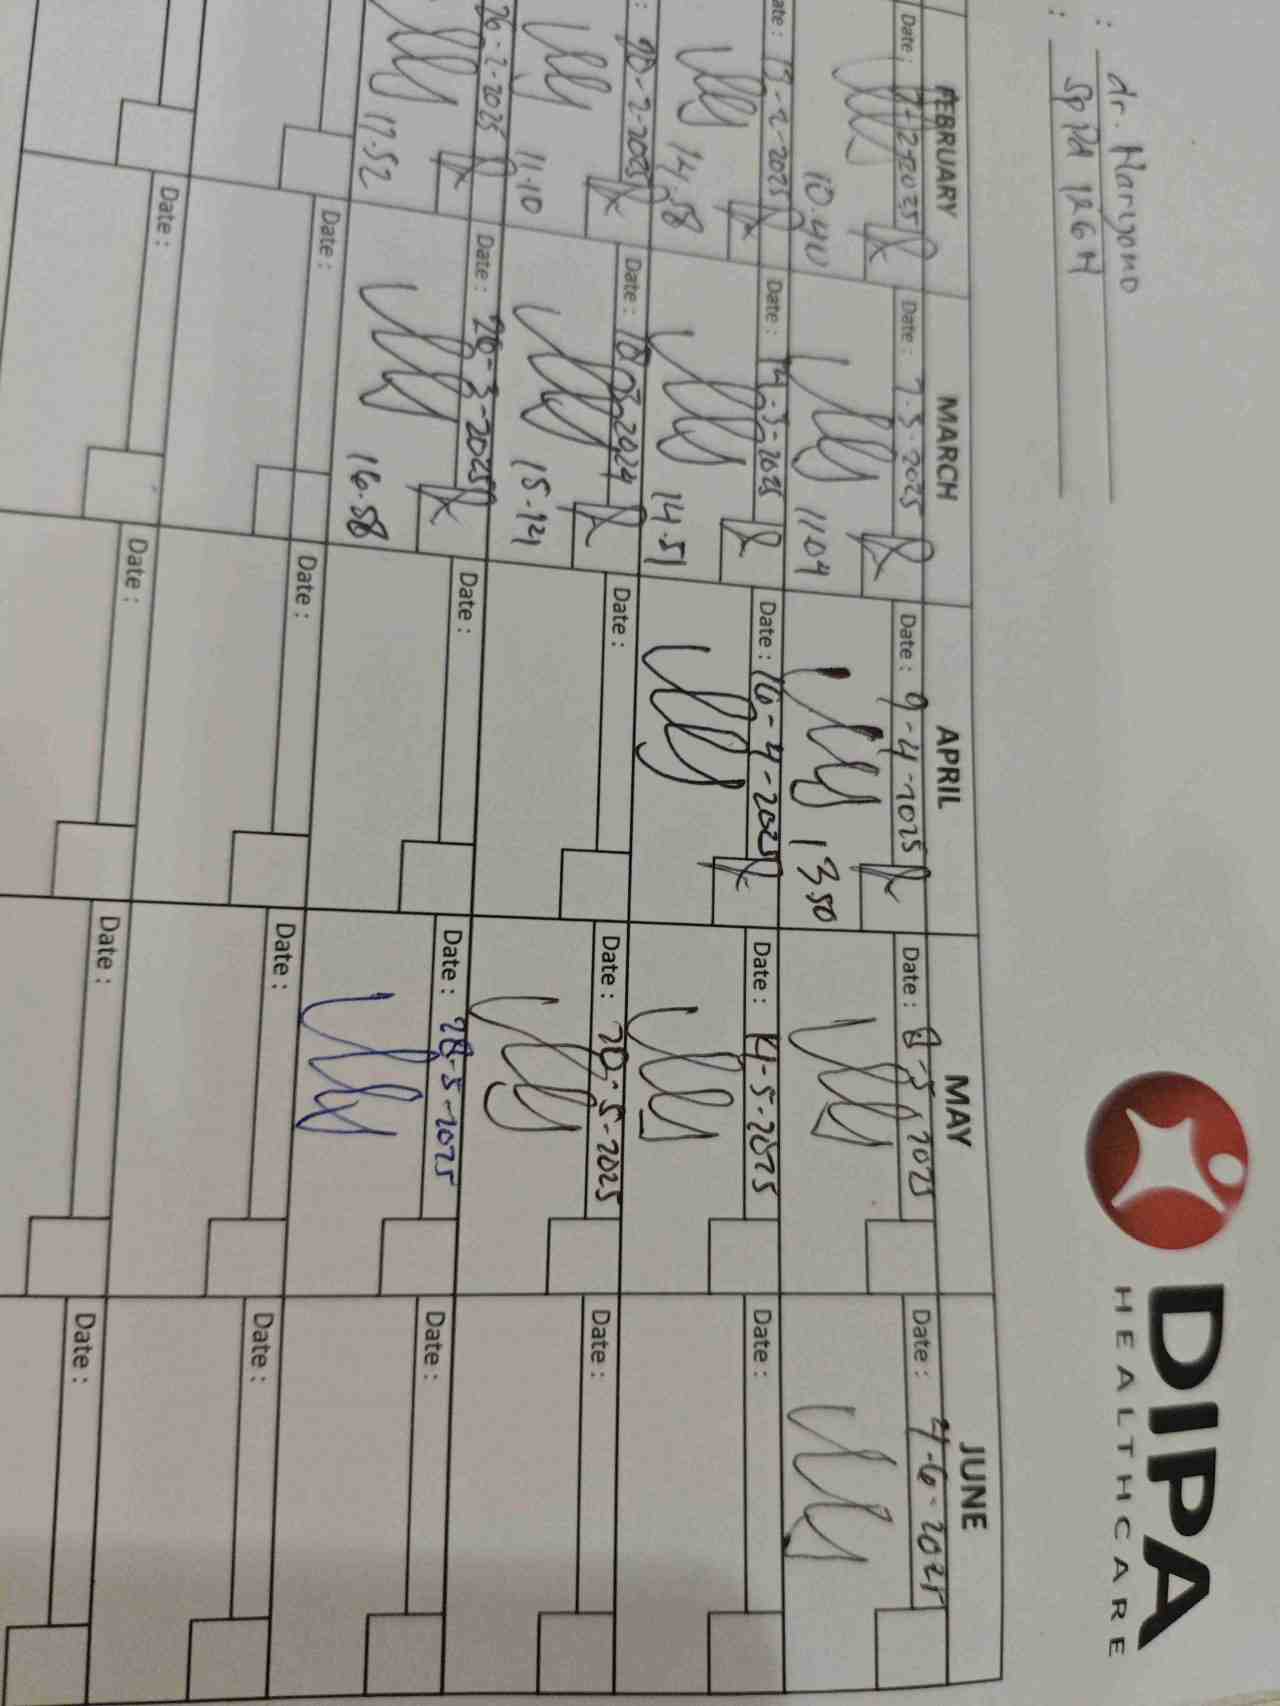 : dr. Haryono
: SpPd 126H
DIPA
HEALTHCARE
FEBRUARY MARCH APRIL MAY JUNE
Date : 7-2-2025 Date : 7.3.2025 Date : 9-4-2025 Date : 8-5-2025 Date : 4-6-2025
10.40 11 04 13.50
ate : 13-2-2025 Date : 14.3-2025 Date : 16-4-2025 Date : 14-5-2025 Date :
14.58 14.51
: 20-2-2025 Date : 18-03-2024 Date : Date : 20.5-2025 Date :
11.10 15.124
26-2-2025 Date : 26-3-2025 Date : Date : 28-5-2025 Date :
17.52 16.58
Date : Date : Date : Date :
Date : Date : Date : Date :